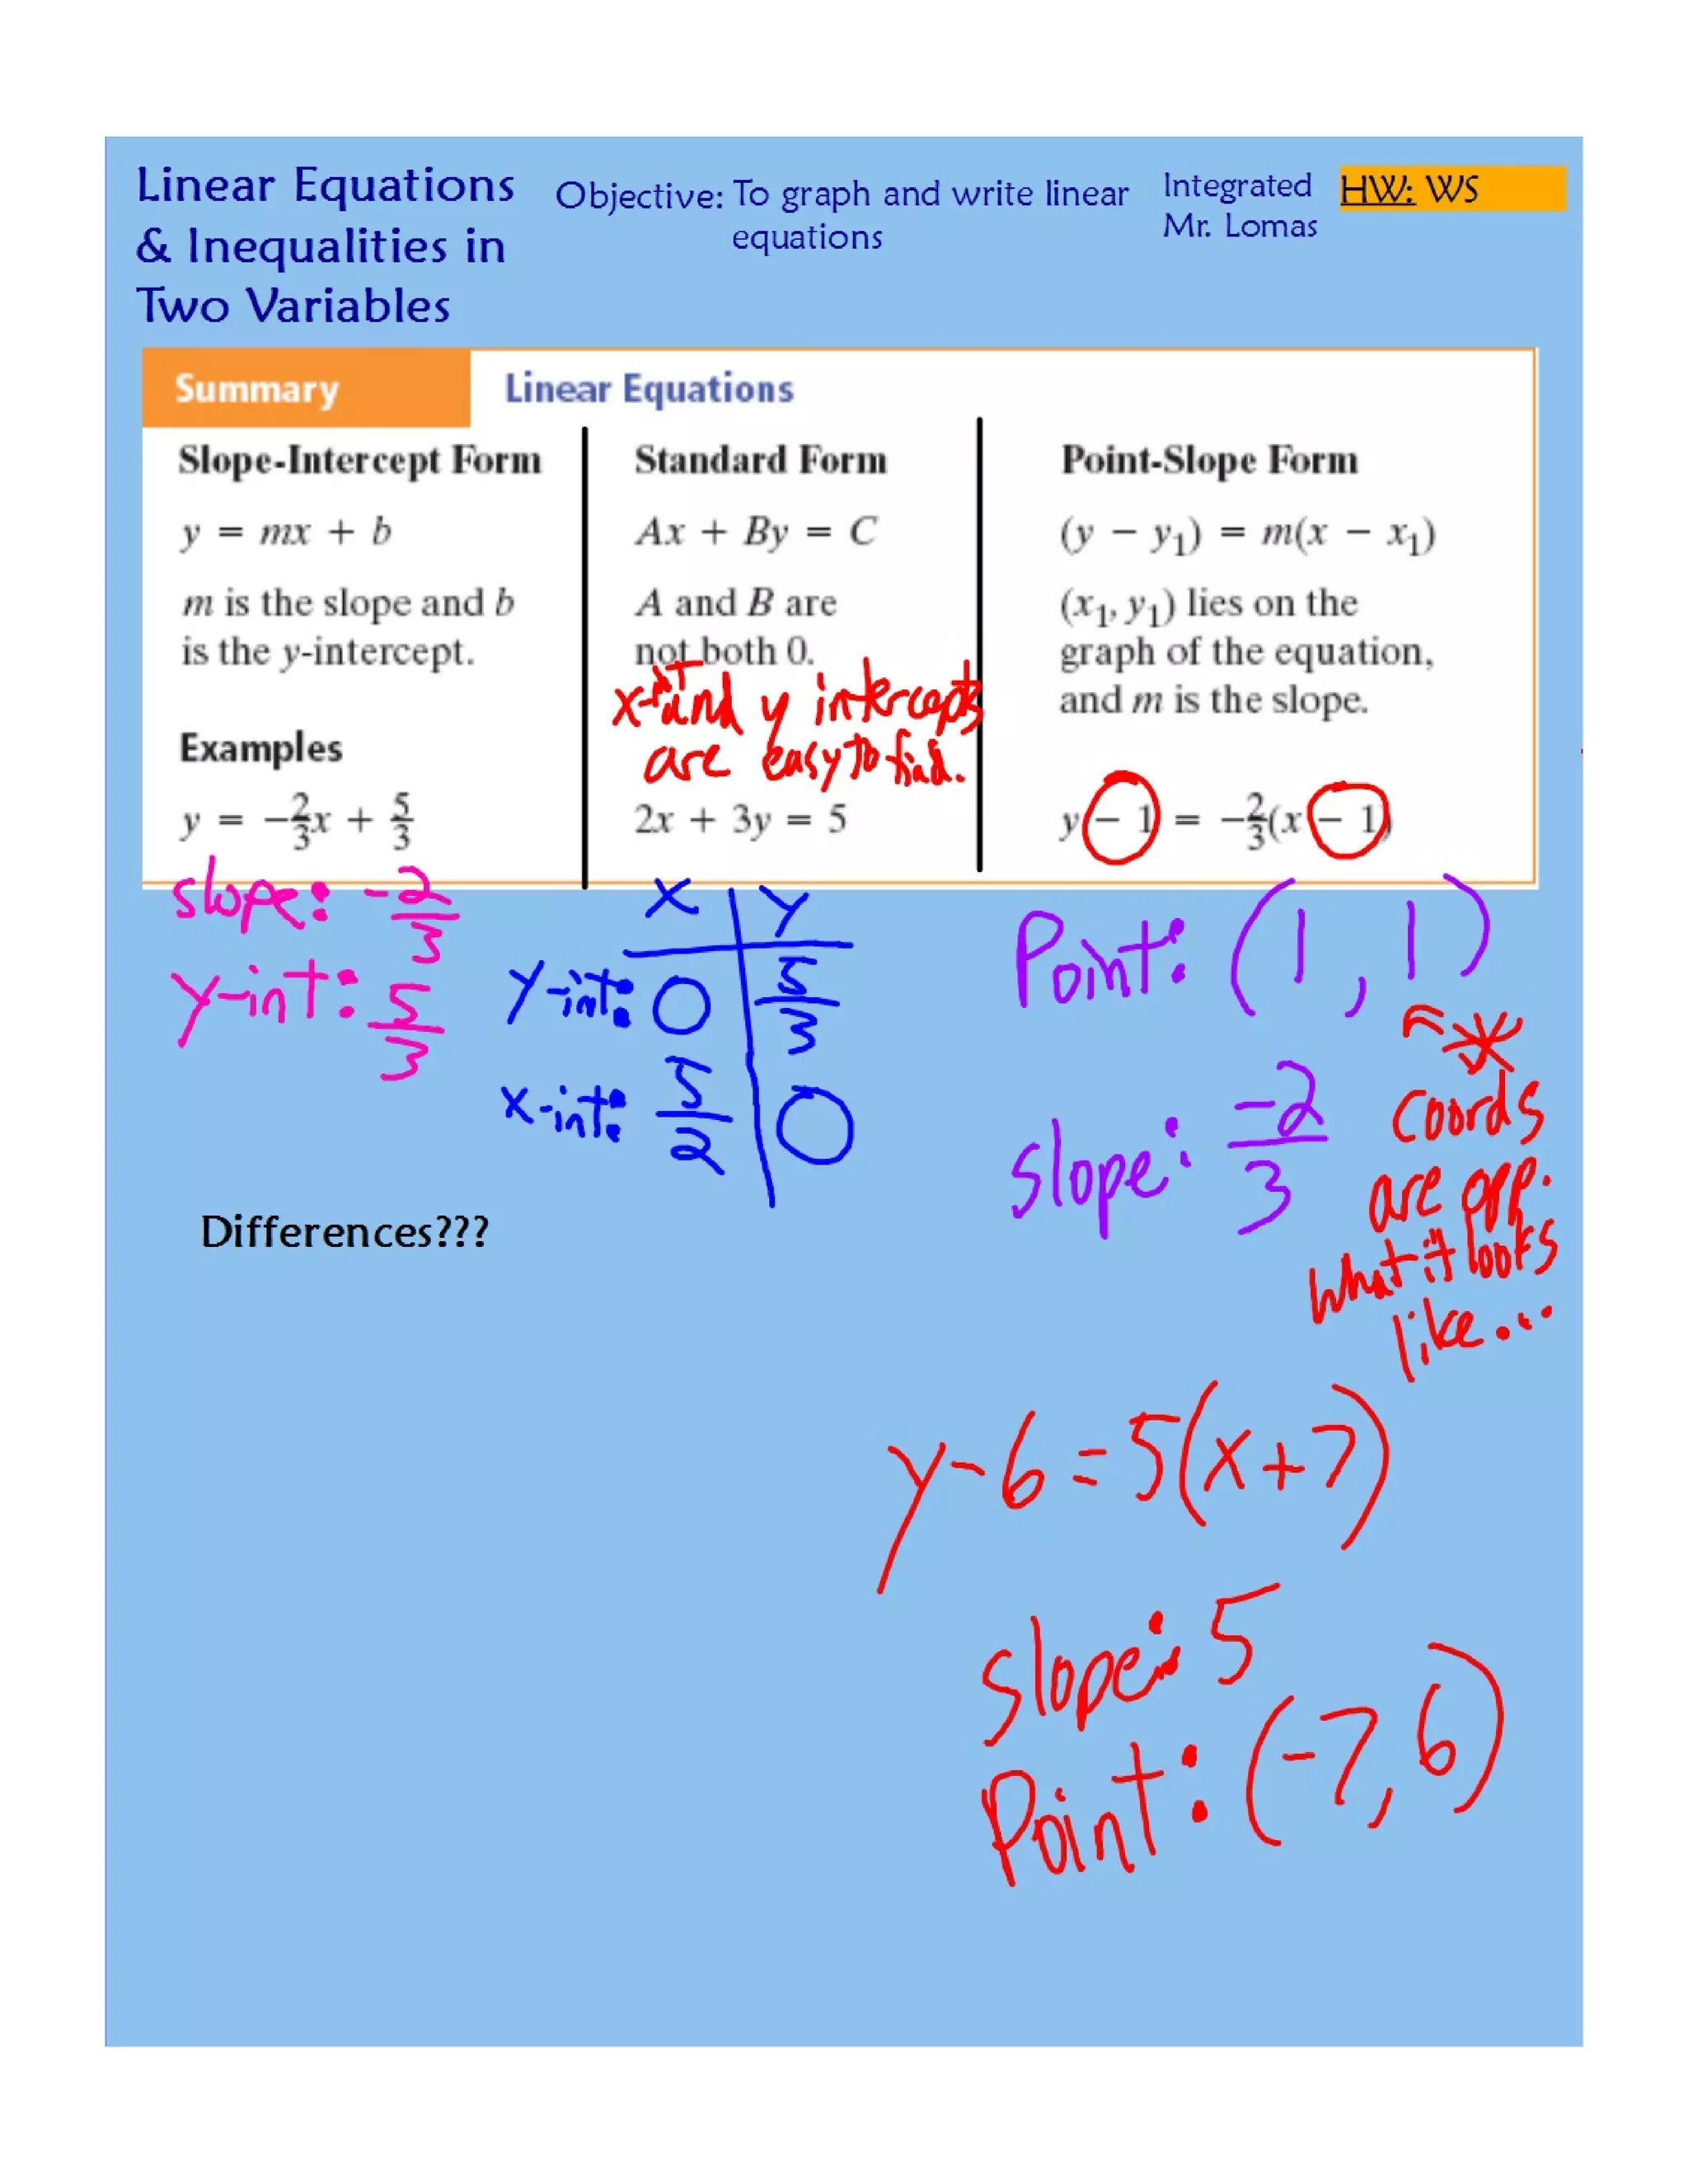 Linear Equations
& Inequalities in
Two Variables
Objective: To graph and write linear
equations
Integrated
Mr. Lomas
HW: WS
Summary
Linear Equations
Slope-Intercept Form
y = mx + b
m is the slope and b
is the y-intercept.
Examples
y = -2/3x + 5/3
slope: -2/3
y-int: 5/3
Standard Form
Ax + By = C
A and B are
not both 0.
x-int and y intercepts
are easy to find.
2x + 3y = 5
x | y
y-int: 0 | 5/3
x-int: 5/2 | 0
Point-Slope Form
(y − y₁) = m(x − x₁)
(x₁, y₁) lies on the
graph of the equation,
and m is the slope.
y − 1 = -2/3(x − 1)
Point: (1, 1)
slope: -2/3
coords
are opp.
what it looks
like...
Differences???
y-6=5(x+7)
slope: 5
Point: (-7, 6)